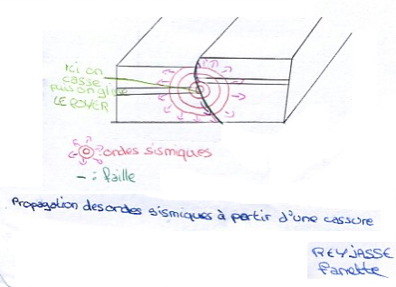 ici on
casse
puis on glisse
LE FOYER
: ondes sismiques
- : faille
Propagation des ondes sismiques à partir d'une cassure
REYJASSE